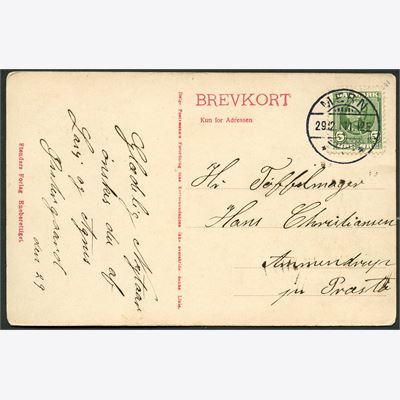 BREVKORT
Kun for Adressen
MERN
29.12
5
Hr. Tøffelmager
Hans Christiansen
Ammendrup
pr Præstø
Glædelig Nytaar
ønskes du af
Lars og Agnes
den 29
Stenders Forlag Eneberettiget.